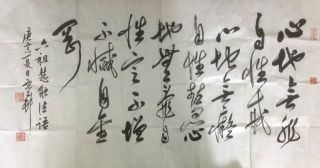 心地無非
自性戒
心地無癡
自性慧心
地無亂自
性定不增
不減自金
剛
六祖慧能法語
庚寅夏日